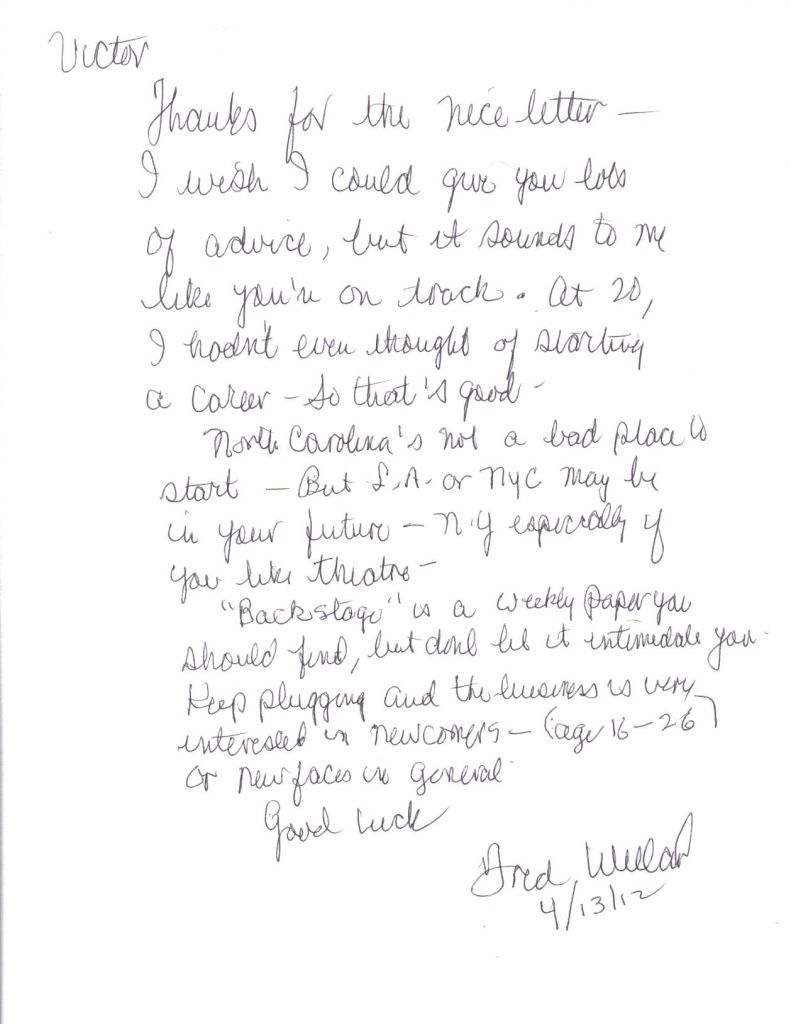 Victor
Thanks for the nice letter —
I wish I could give you lots
of advice, but it sounds to me
like you're on track. At 20,
I hadn't even thought of starting
a career – So that's good –
North Carolina's not a bad place to
start – But L.A. or NYC may be
in your future – N.Y especially if
you like theatre –
"Backstage" is a weekly paper you
should find, but don't let it intimidate you.
Keep plugging and the business is very
interested in newcomers – (age 16–26)
or new faces in general
Good Luck
Fred
4/13/12